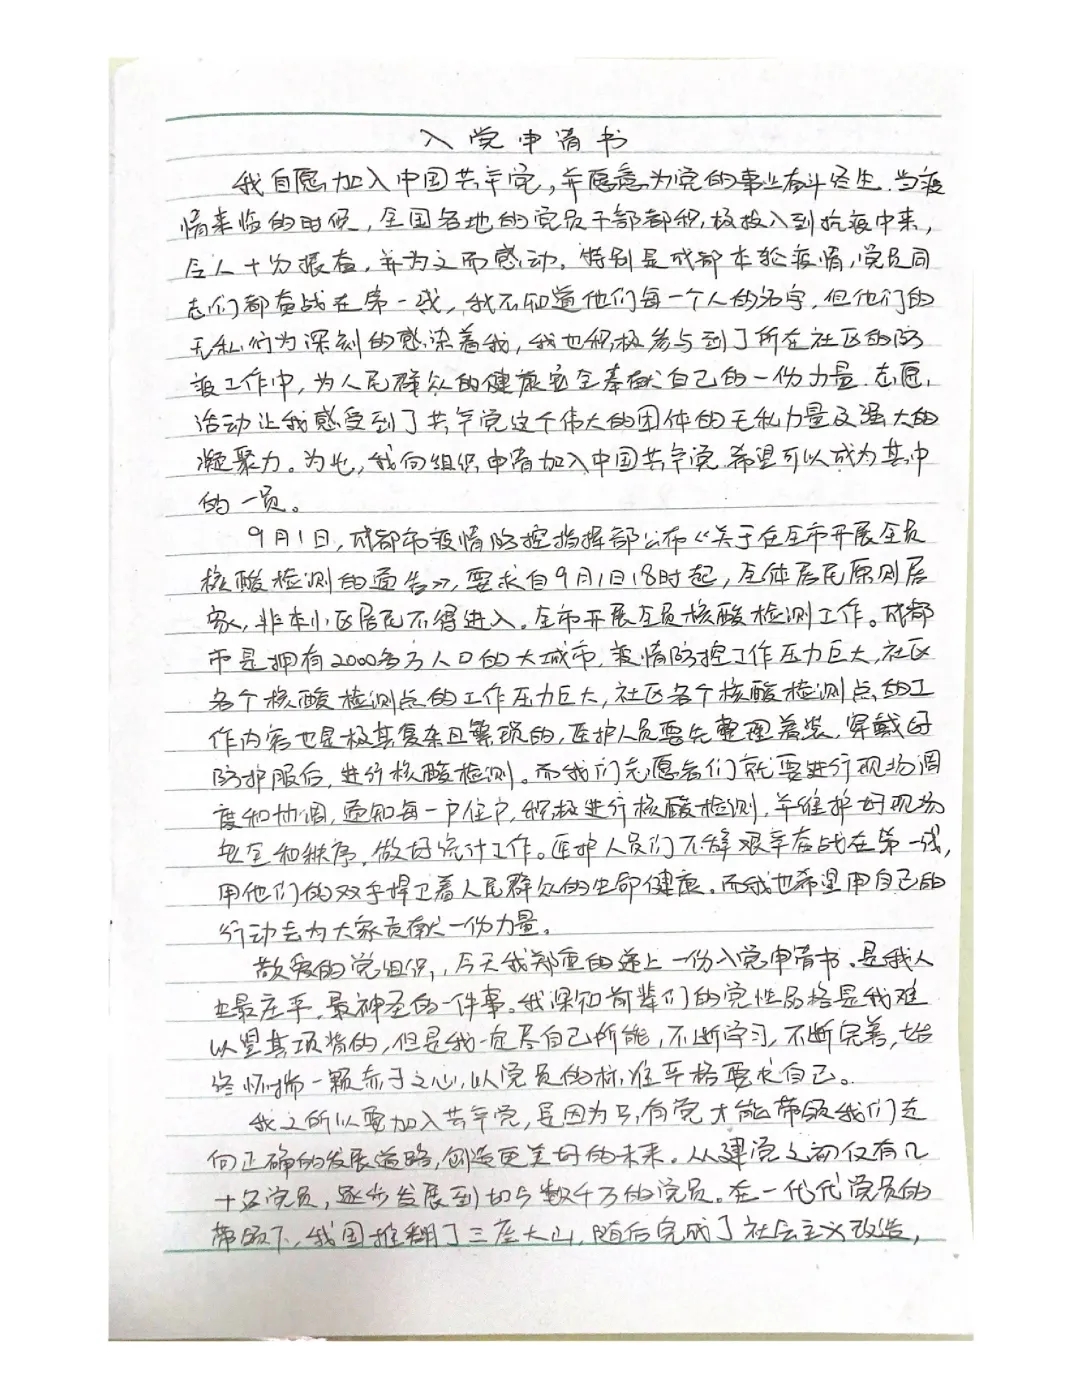 入党申请书
我自愿加入中国共产党,并愿意为党的事业奋斗终生.当疫
情来临的时候,全国各地的党员干部都积极投入到抗疫中来,
令人十分振奋,并为之而感动。特别是成都本轮疫情,党员同
志们都奋战在第一线,我不知道他们每一个人的名字,但他们的
无私行为深刻的感染着我,我也积极参与到了所在社区的防
疫工作中,为人民群众的健康安全奉献自己的一份力量.志愿
活动让我感受到了共产党这个伟大的团体的无私力量及强大的
凝聚力。为此,我向组织申请加入中国共产党.希望可以成为其中
的一员。
9月1日,成都市疫情防控指挥部公布《关于在全市开展全员
核酸检测的通告》,要求自9月1日18时起,全体居民原则居
家,非本小区居民不得进入。全市开展全员核酸检测工作。成都
市是拥有2000多万人口的大城市,疫情防控工作压力巨大,社区
各个核酸检测点的工作压力巨大,社区各个核酸检测点的工
作内容也是极其复杂且繁琐的,医护人员要先整理着装,穿戴好
防护服后,进行核酸检测。而我们志愿者们就要进行现场调
度和协调,通知每一户住户,积极进行核酸检测,并维护好现场
安全和秩序,做好统计工作。医护人员们不辞艰辛奋战在第一线,
用他们的双手捍卫着人民群众的生命健康.而我也希望用自己的
行动去为大家贡献一份力量。
敬爱的党组织,今天我郑重的递上一份入党申请书.是我人
生最庄严,最神圣的一件事。我深知前辈们的党性品格是我难
以望其项背的,但是我一定尽自己所能,不断学习,不断完善,始
终怀揣一颗赤子之心,以党员的标准严格要求自己。
我之所以要加入共产党,是因为只有党才能带领我们走
向正确的发展道路,创造更美好的未来.从建党之初仅有几
十名党员,逐步发展到如今数千万的党员。在一代代党员的
带领下,我国推翻了三座大山,随后完成了社会主义改造,